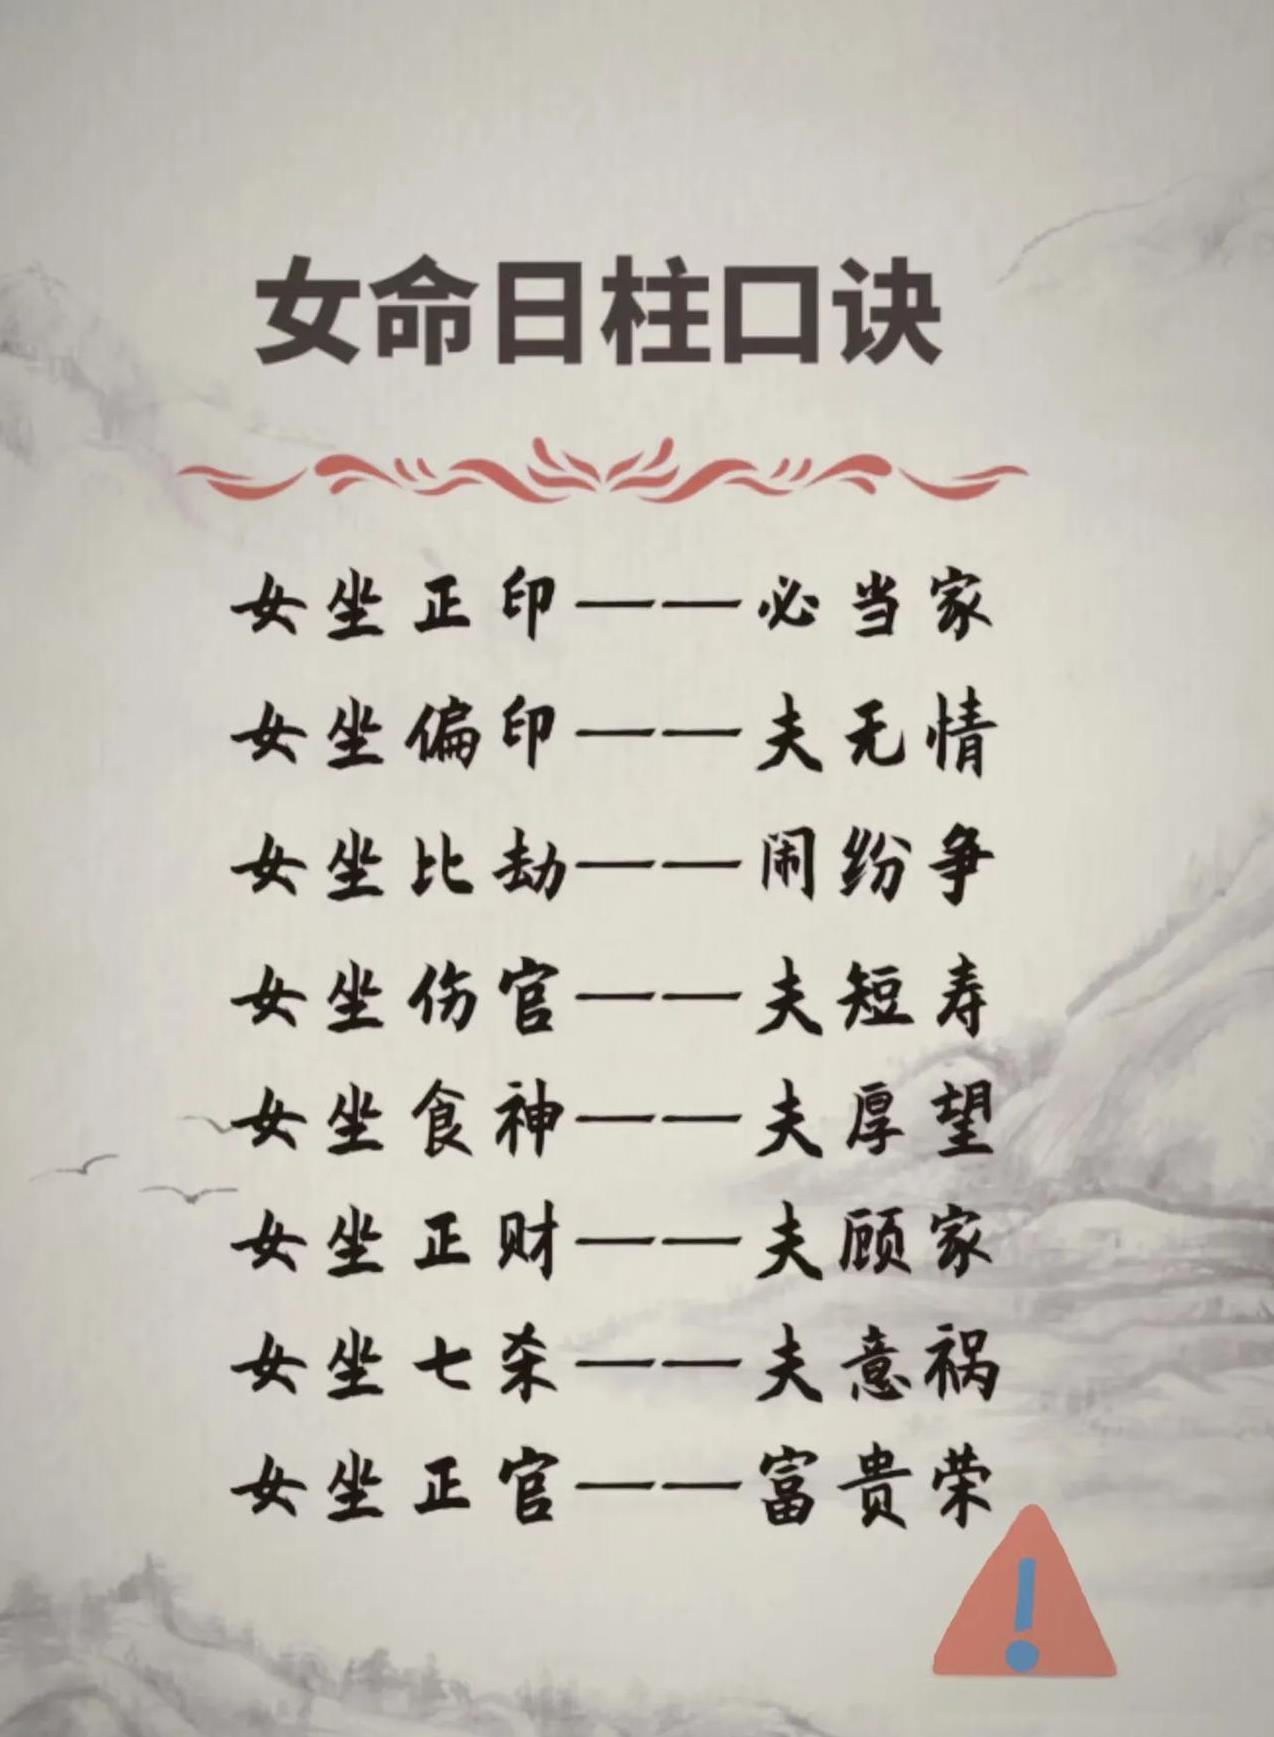 女命日柱口诀
女坐正印——必当家
女坐偏印——夫无情
女坐比劫——闹纷争
女坐伤官——夫短寿
女坐食神——夫厚望
女坐正财——夫顾家
女坐七杀——夫意祸
女坐正官——富贵荣
!